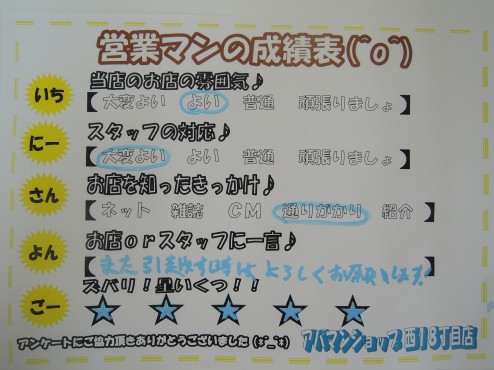 営業マンの成績表(^o^)
いち 当店のお店の雰囲気♪
【 大変よい よい 普通 頑張りましょ 】
にー スタッフの対応♪
【 大変よい よい 普通 頑張りましょ 】
さん お店を知ったきっかけ♪
【 ネット 雑誌 CM 通りがかり 紹介 】
よん お店orスタッフに一言♪
【 また引越す時はよろしくお願いします! 】
ごー ズバリ!星いくつ!!
★ ★ ★ ★ ★
アンケートにご協力頂きありがとうございました
アパマンショップ西18丁目店